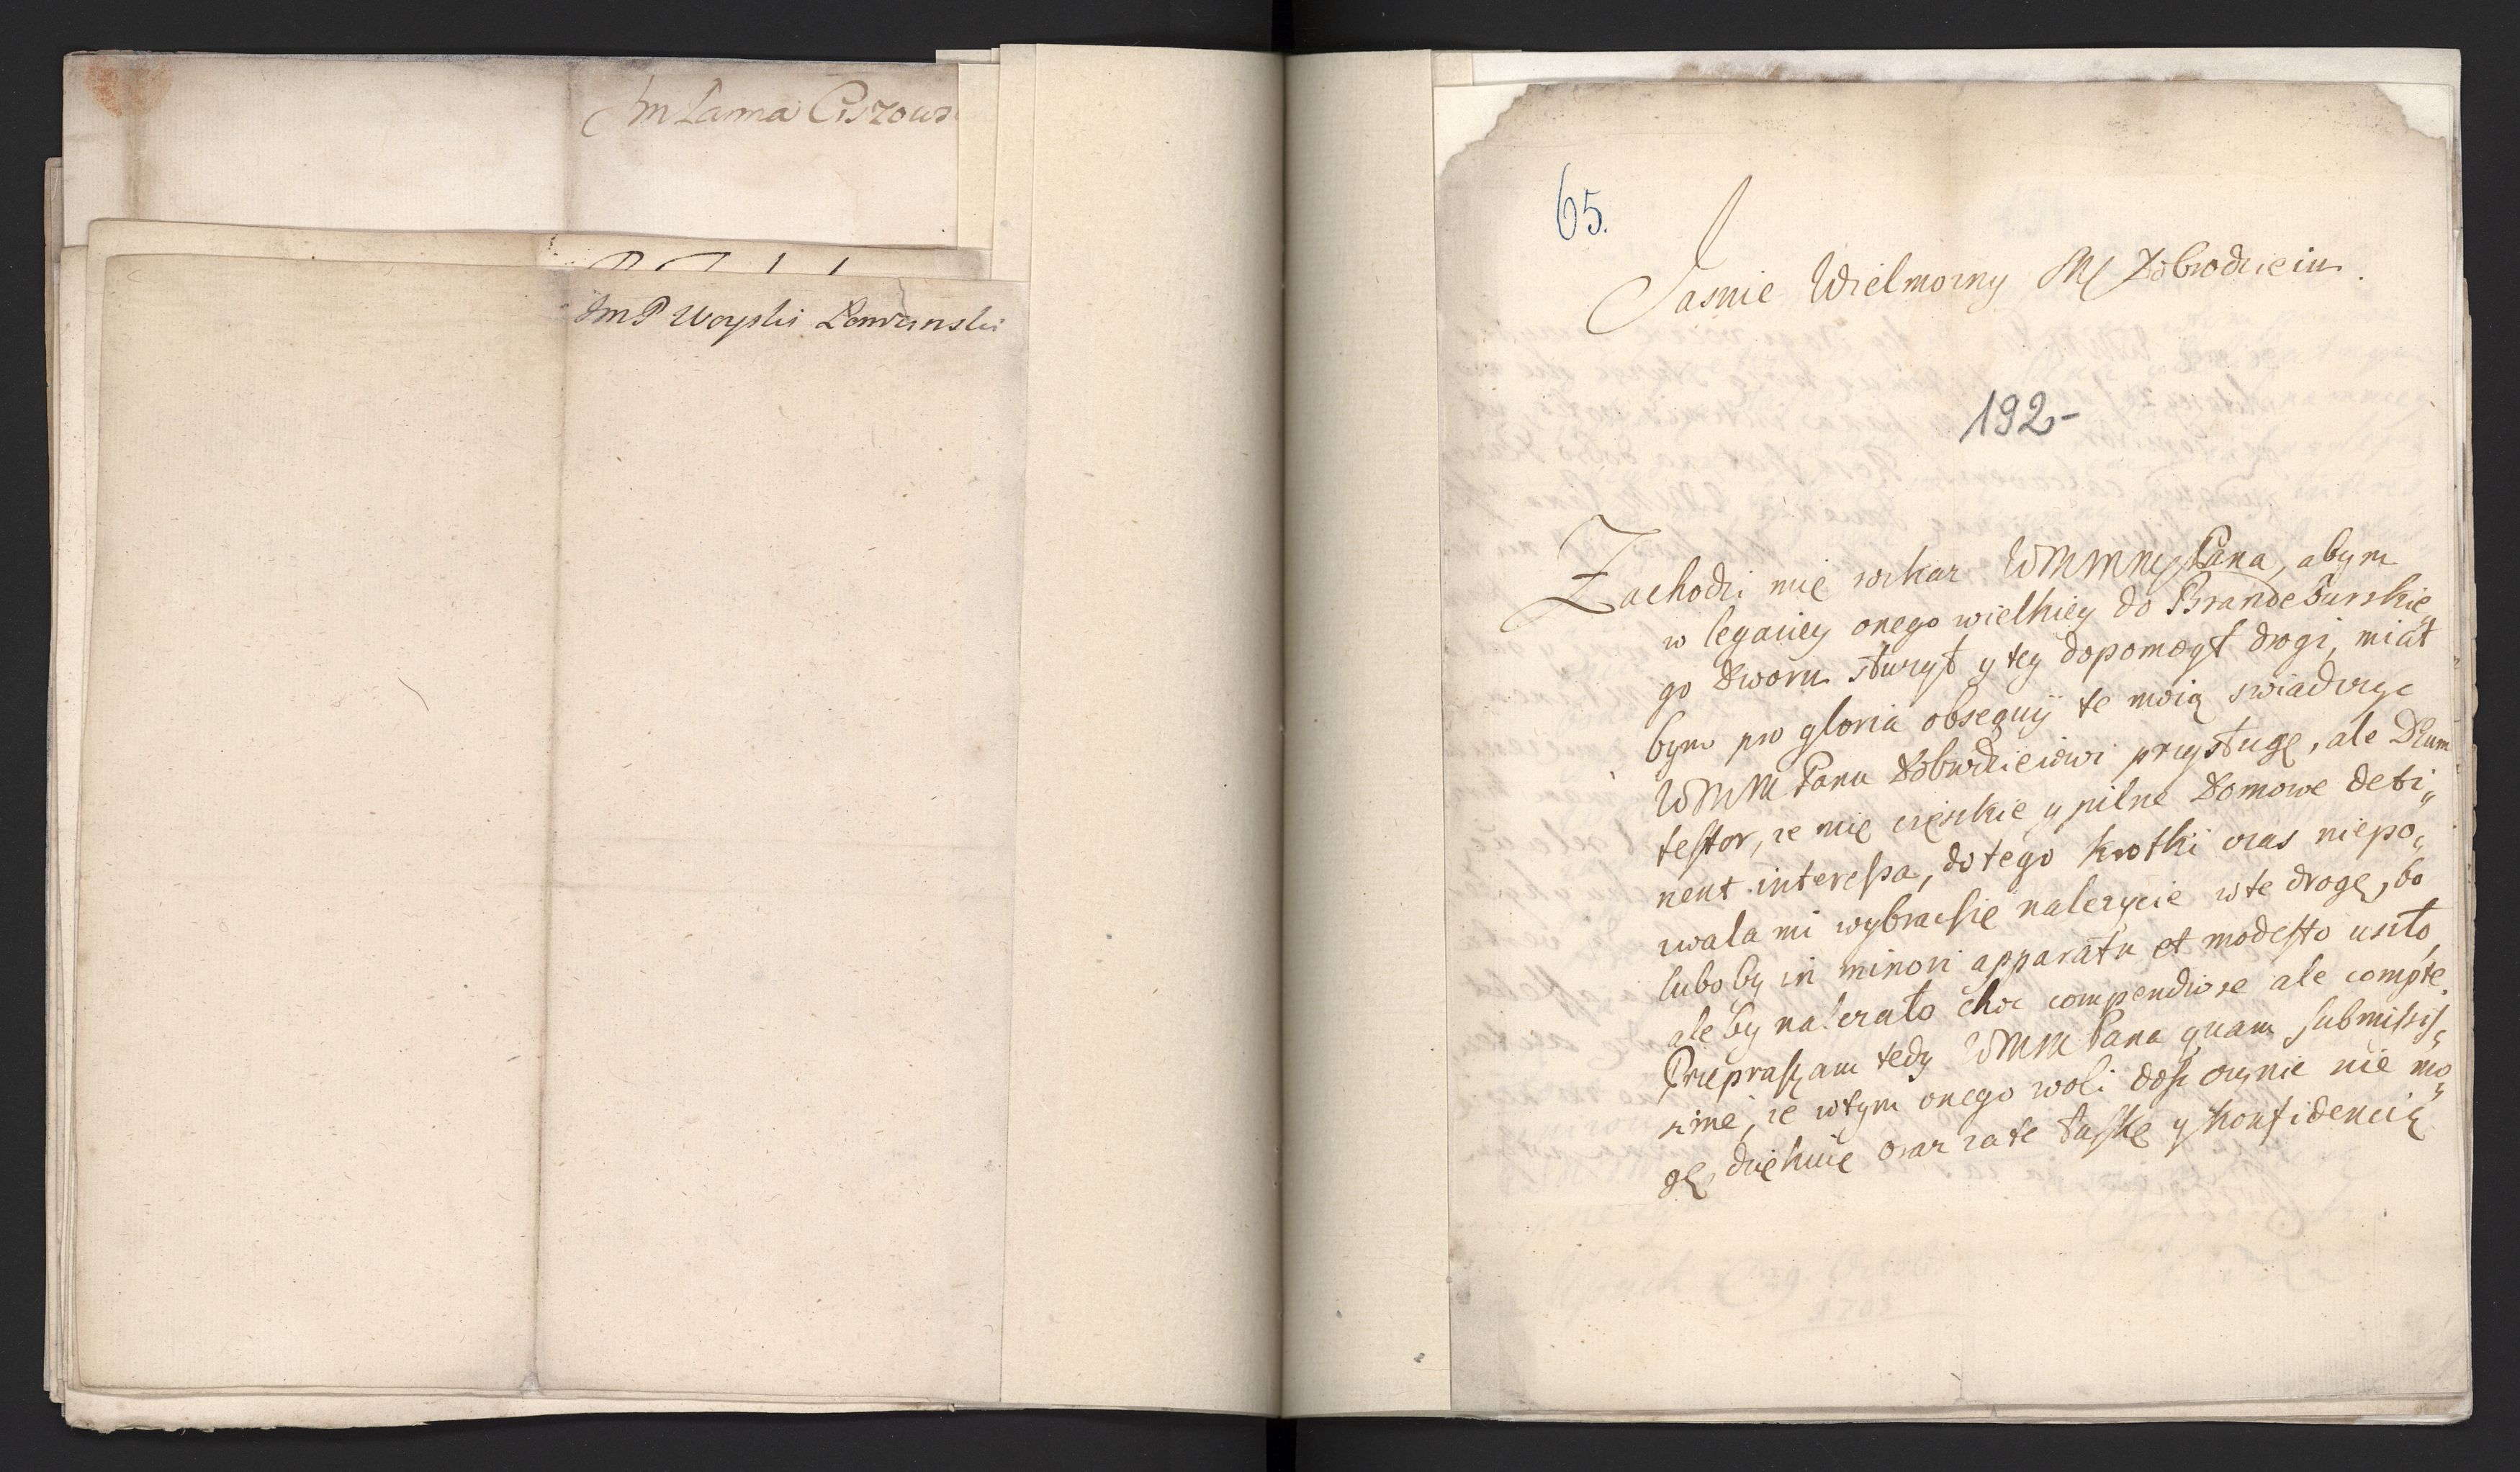 Jm Pana Ciszows
JmP Woyski
65.
Jasnie Wielmozny Mŝ Dobrodzieiu.
192-
Zachodzi mię wskaz WMMMŝ Pana, abym
w legaciey onego wielkiey do Brandeburskie„
go Dworu słuzył y tey dopomogł drogi, miał
bym pro gloria obsequij te moią swiadczyc
WMM Panu Dobrodzieiowi przysługę, ale Deum
testor, ze mię cięszkie y pilne Domowe deti„
nent interessa, do tego krotki czas niepo„
zwala mi wybracsię nalezycie w te drogę, bo
lubo by in minori apparatu et modesto uszło,
ale by nalezało choc compendiose ale compte.
Przepraszam tedy WMM Pana quam submissis„
sime, ze wtym onego woli dosc czynic nie mo„
gę, dziękuię oraz za te łaskę y konfidencią